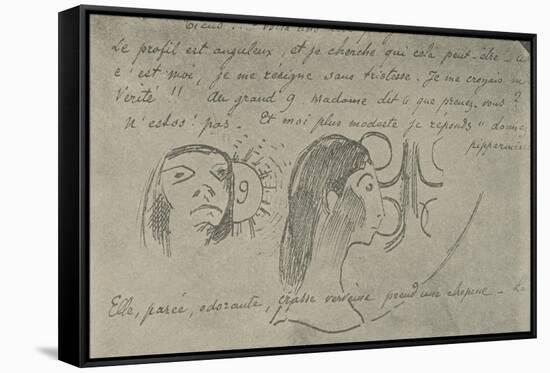 Le profil est anguleux, et je cherche qui cela peut-être -
c'est moi, je me résigne sans tristesse. Je me croyais
Vérité !! Au grand 9 madame dit "que prenez-vous ?
N'estoss! pas. Et moi plus modeste je réponds "donne
pippermin
9
Elle, parée, odorante, grasse verveine prend une chopine -